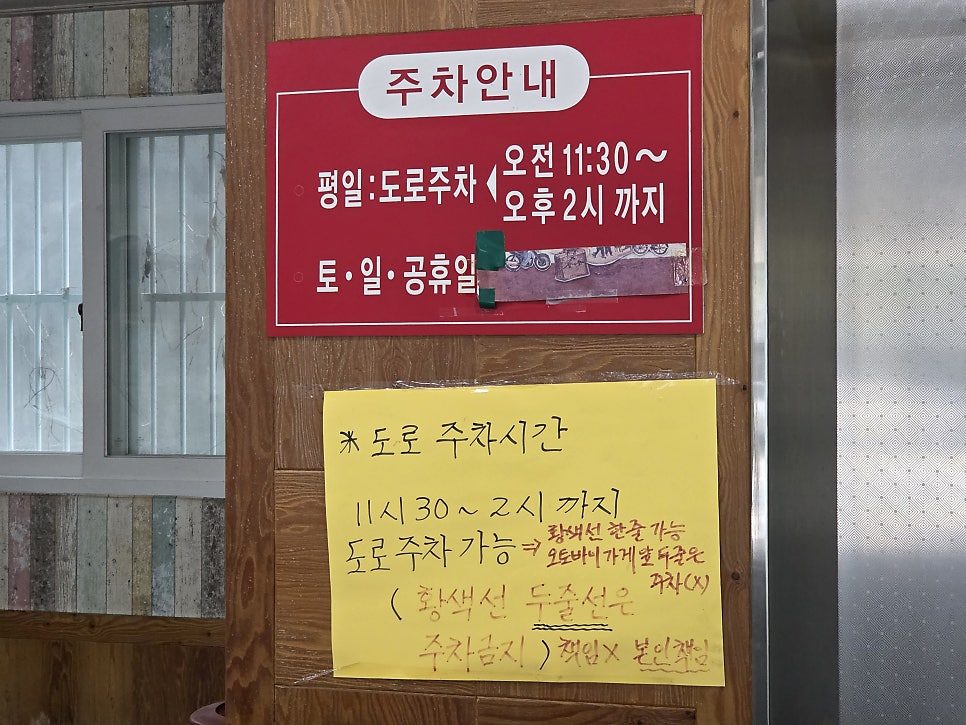 주차안내
평일:도로주차 ◀ 오전 11:30~
오후 2시 까지
토·일·공휴일
※ 도로 주차시간
11시 30 ~ 2시 까지
도로주차 가능 ⇒ 황색선 한줄 가능
오토바이가게 앞 두줄은
주차(X)
( 황색선 두줄선은
주차금지 ) 책임X 본인책임